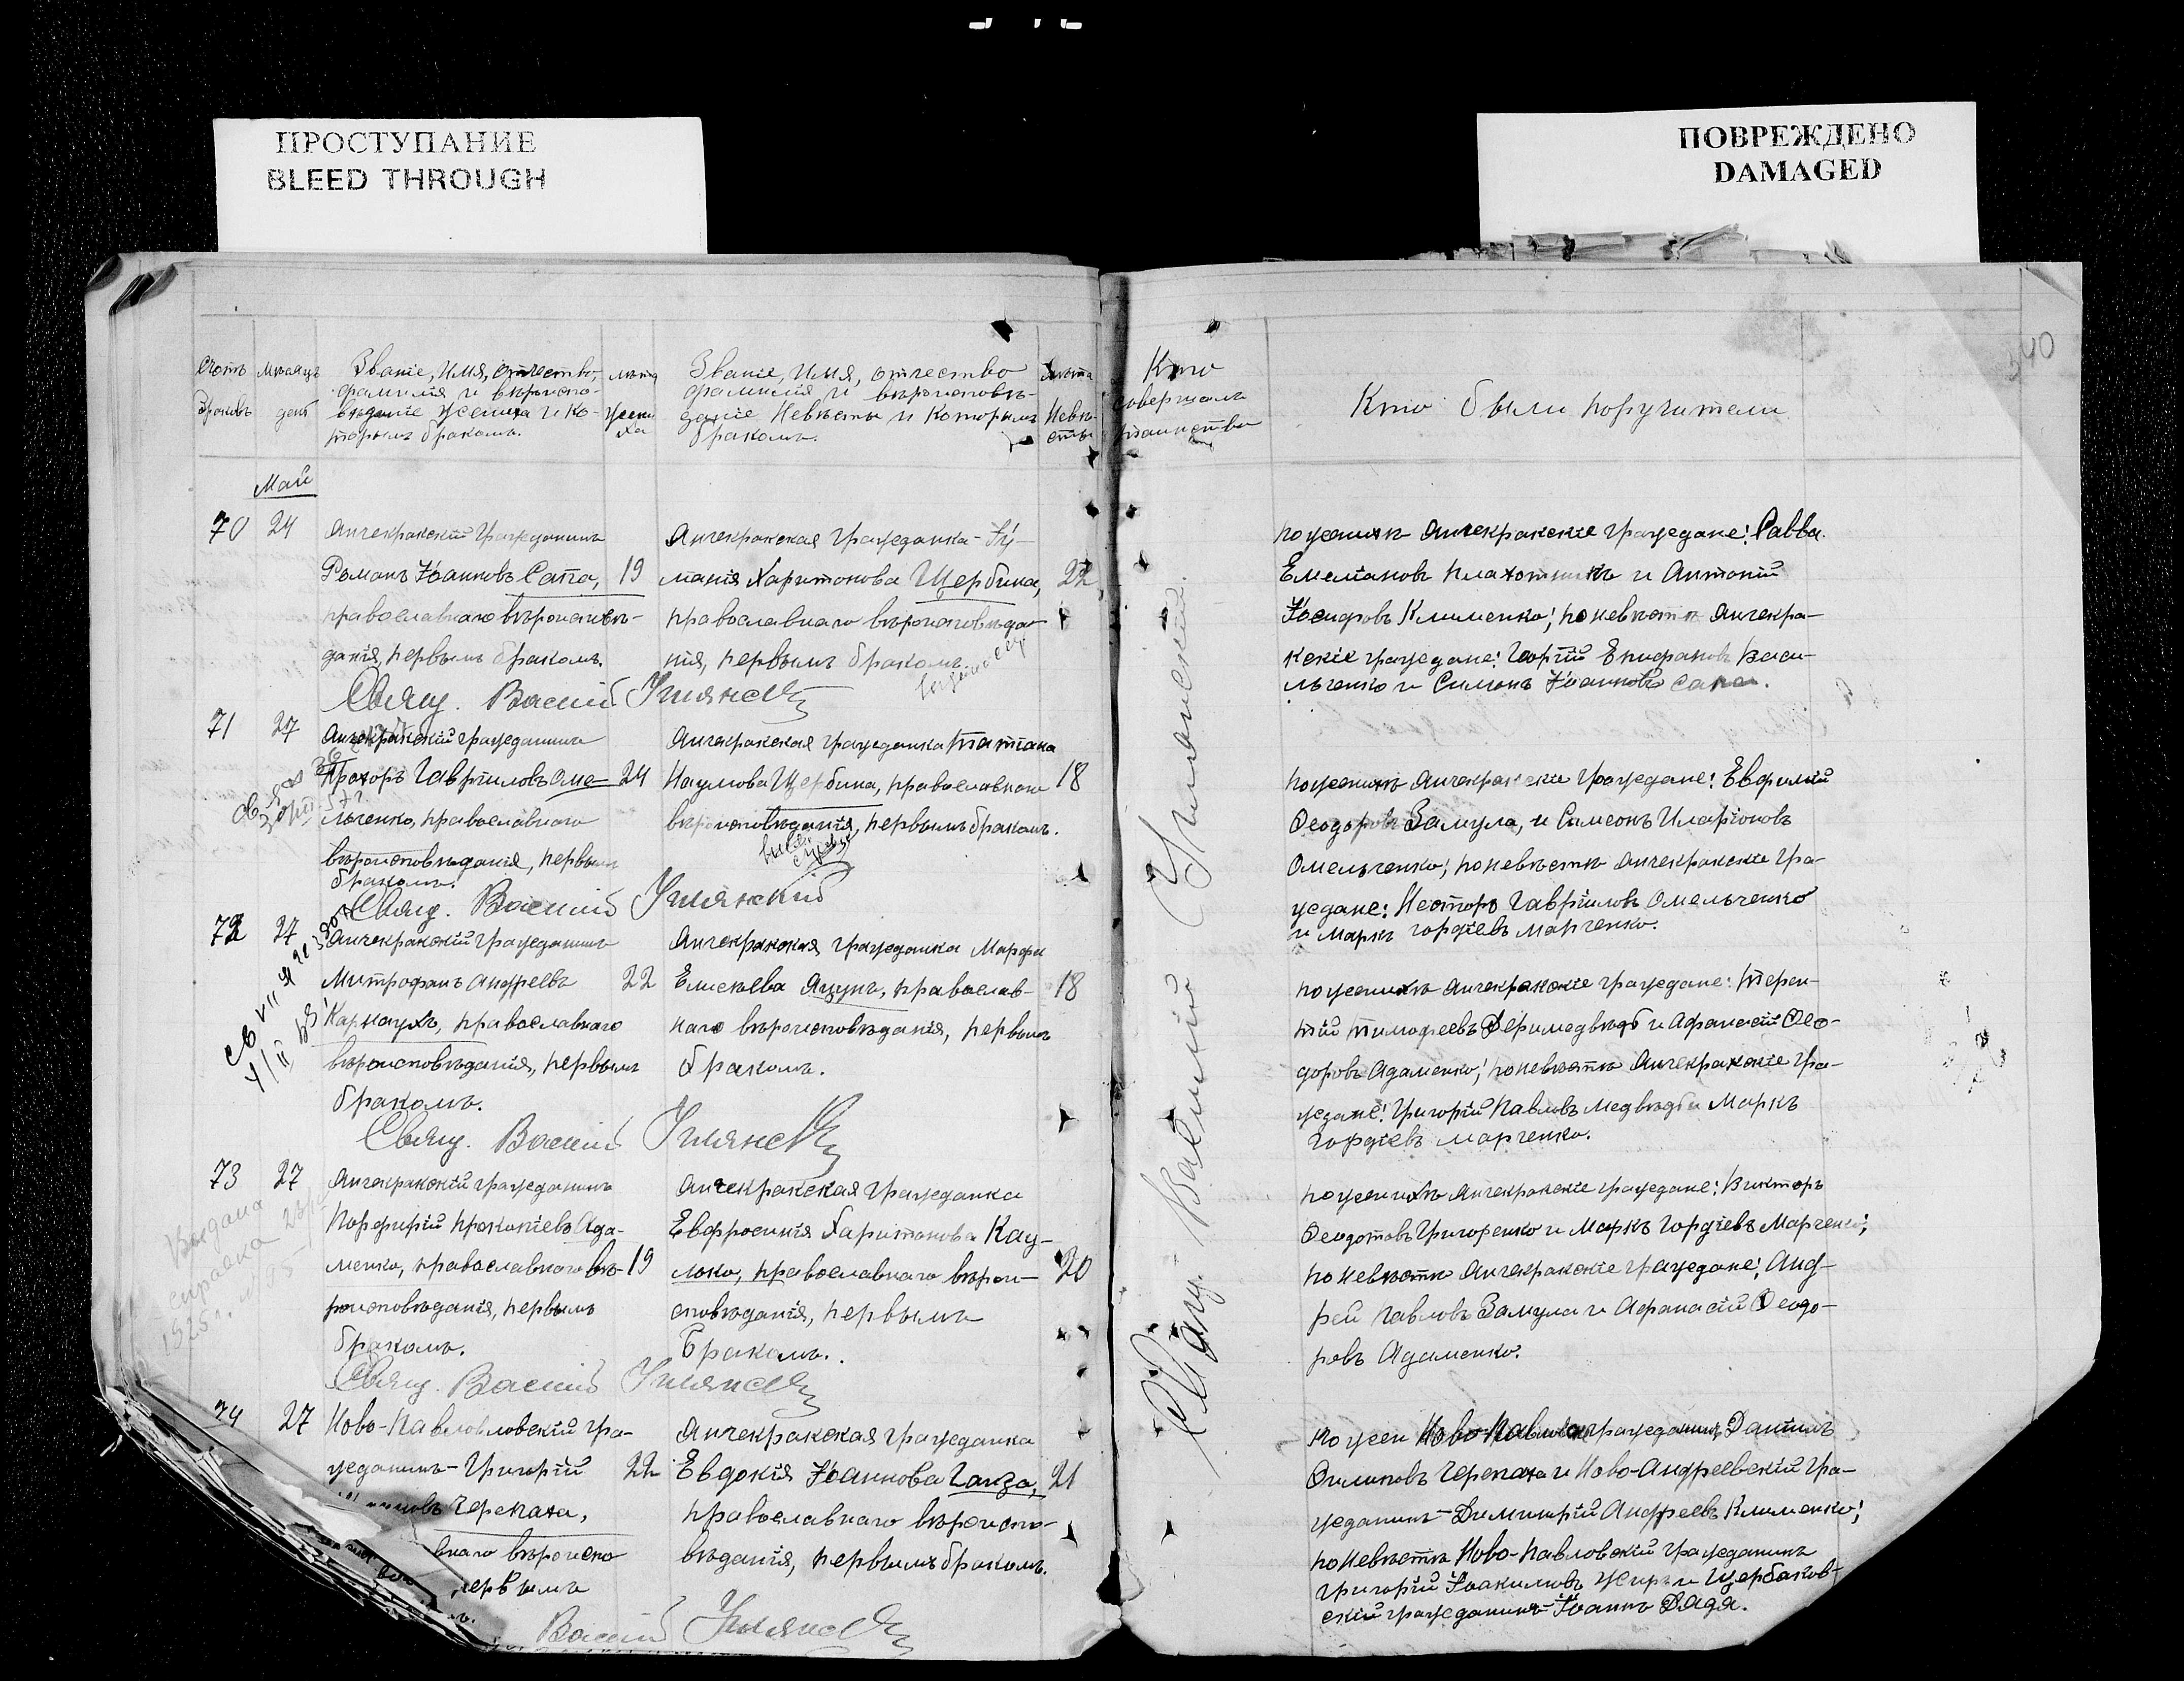 ПРОСТУПАНИЕ
BLEED THROUGH
ПОВРЕЖДЕНО
DAMAGED
340
Счетъ браковъ
Мѣсяцъ день
Званіе, имя, отчество,
фамилія и вѣроиспо-
вѣданіе жениха и ко-
торымъ бракомъ.
лѣта жени-
ха
Званіе, имя, отчество
фамилія и вѣроисповѣ-
даніе невѣсты и которымъ
бракомъ.
лѣта Невѣ-
сты
Кто
совершалъ
таинство
Кто были поручители
Май
70 24 Анчекракскій гражданинъ
Романъ Іоанновъ Сапа, 19
православнаго вѣроисповѣ-
данія, первымъ бракомъ.
Анчекракская гражданка
Харитонова Щербина, 22
православнаго вѣроисповѣда-
нія, первымъ бракомъ.
Свящ. Василій
по женихѣ Анчекракскіе граждане: Савва
Емеліановъ Плахотникъ и Антоній
Іосифовъ Клименко; по невѣстѣ Анчекра-
кскіе граждане: Георгій Епифановъ Васи-
льченко и Симонъ Іоанновъ Сапа.
71 27 Анчекракскій гражданинъ
Прохоръ Гавріиловъ Оме- 24
льченко, православнаго
вѣроисповѣданія, первымъ
бракомъ.
Анчекракская гражданка Татіана
Наумова Щербина, православнаго 18
вѣроисповѣданія, первымъ бракомъ.
Свящ. Василій
по женихѣ Анчекракскіе граждане: Евфимій
Ѳеодоровъ Замула, и Симеонъ Иларіоновъ
Омельченко; по невѣстѣ Анчекракскіе гра-
ждане: Несторъ Гавріиловъ Омельченко
и Маркъ Гордіевъ Марченко.
72 27 Анчекракскій гражданинъ
Митрофанъ Андреевъ 22
Карнаухъ, православнаго
вѣроисповѣданія, первымъ
бракомъ.
Анчекракская гражданка Марфа
Елисѣева Яцунъ, православ- 18
наго вѣроисповѣданія, первымъ
бракомъ.
Свящ. Василій
по женихѣ Анчекракскіе граждане: Терен-
тій Тимофеевъ Деримедвѣдь и Афанасій Ѳео-
доровъ Адаменко; по невѣстѣ Анчекракскіе гра-
ждане: Григорій Павловъ Медвѣдь и Маркъ
Гордіевъ Марченко.
73 27 Анчекракскій гражданинъ
Порфирій Прокопіевъ Ада-
менко, православнаго вѣ- 19
роисповѣданія, первымъ
бракомъ.
Анчекракская гражданка
Евфросинія Харитонова Кау-
ложо, православнаго вѣрои- 20
сповѣданія, первымъ
бракомъ.
Свящ. Василій
Выдана
справка
1925 г.
по женихѣ Анчекракскіе граждане: Викторъ
Ѳеодотовъ Григоренко и Маркъ Гордіевъ Марченко;
по невѣстѣ Анчекракскіе граждане: Анд-
рей Павловъ Замула и Афанасій Ѳеодо-
ровъ Адаменко.
74 27 Ново-Павловловскій гра-
жданинъ Григорій 22
Черепаха,
внаго вѣроиспо
первымъ
Анчекракская гражданка
Евдокія Іоаннова Ганза, 21
православнаго вѣроиспо-
вѣданія, первымъ бракомъ.
Василій
по жен Ново-Павлов гражданинъ Даніилъ
Филиповъ Черепаха и Ново-Андреевскій гра-
жданинъ Димитрій Андреевъ Клименко;
по невѣстѣ Ново-Павловскій гражданинъ
Григорій Іоакимовъ и Щербаков-
скій гражданинъ Іоаннъ Дядя.
Свящ. Василій